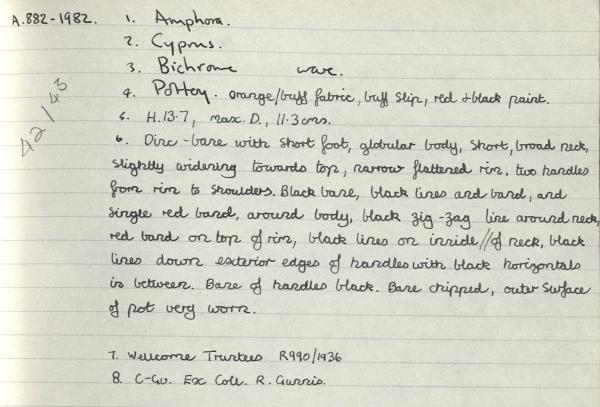 A.882-1982. 1. Amphora.
2. Cyprus.
3. Bichrome ware.
42/43
4. Pottery. orange/buff fabric, buff slip, red & black paint.
5. H.13.7, max. D., 11.3 cms.
6. Disc-base with short foot, globular body, short, broad neck,
slightly widening towards top, narrow flattened rim, two handles
from rim to shoulders. Black base, black lines and band, and
single red band, around body, black zig-zag line around neck,
red band on top of rim, black lines on inside // of neck, black
lines down exterior edges of handles with black horizontals
in between. Base of handles black. Base chipped, outer surface
of pot very worn.
7. Wellcome Trustees R990/1936
8. Ex Coll. R.